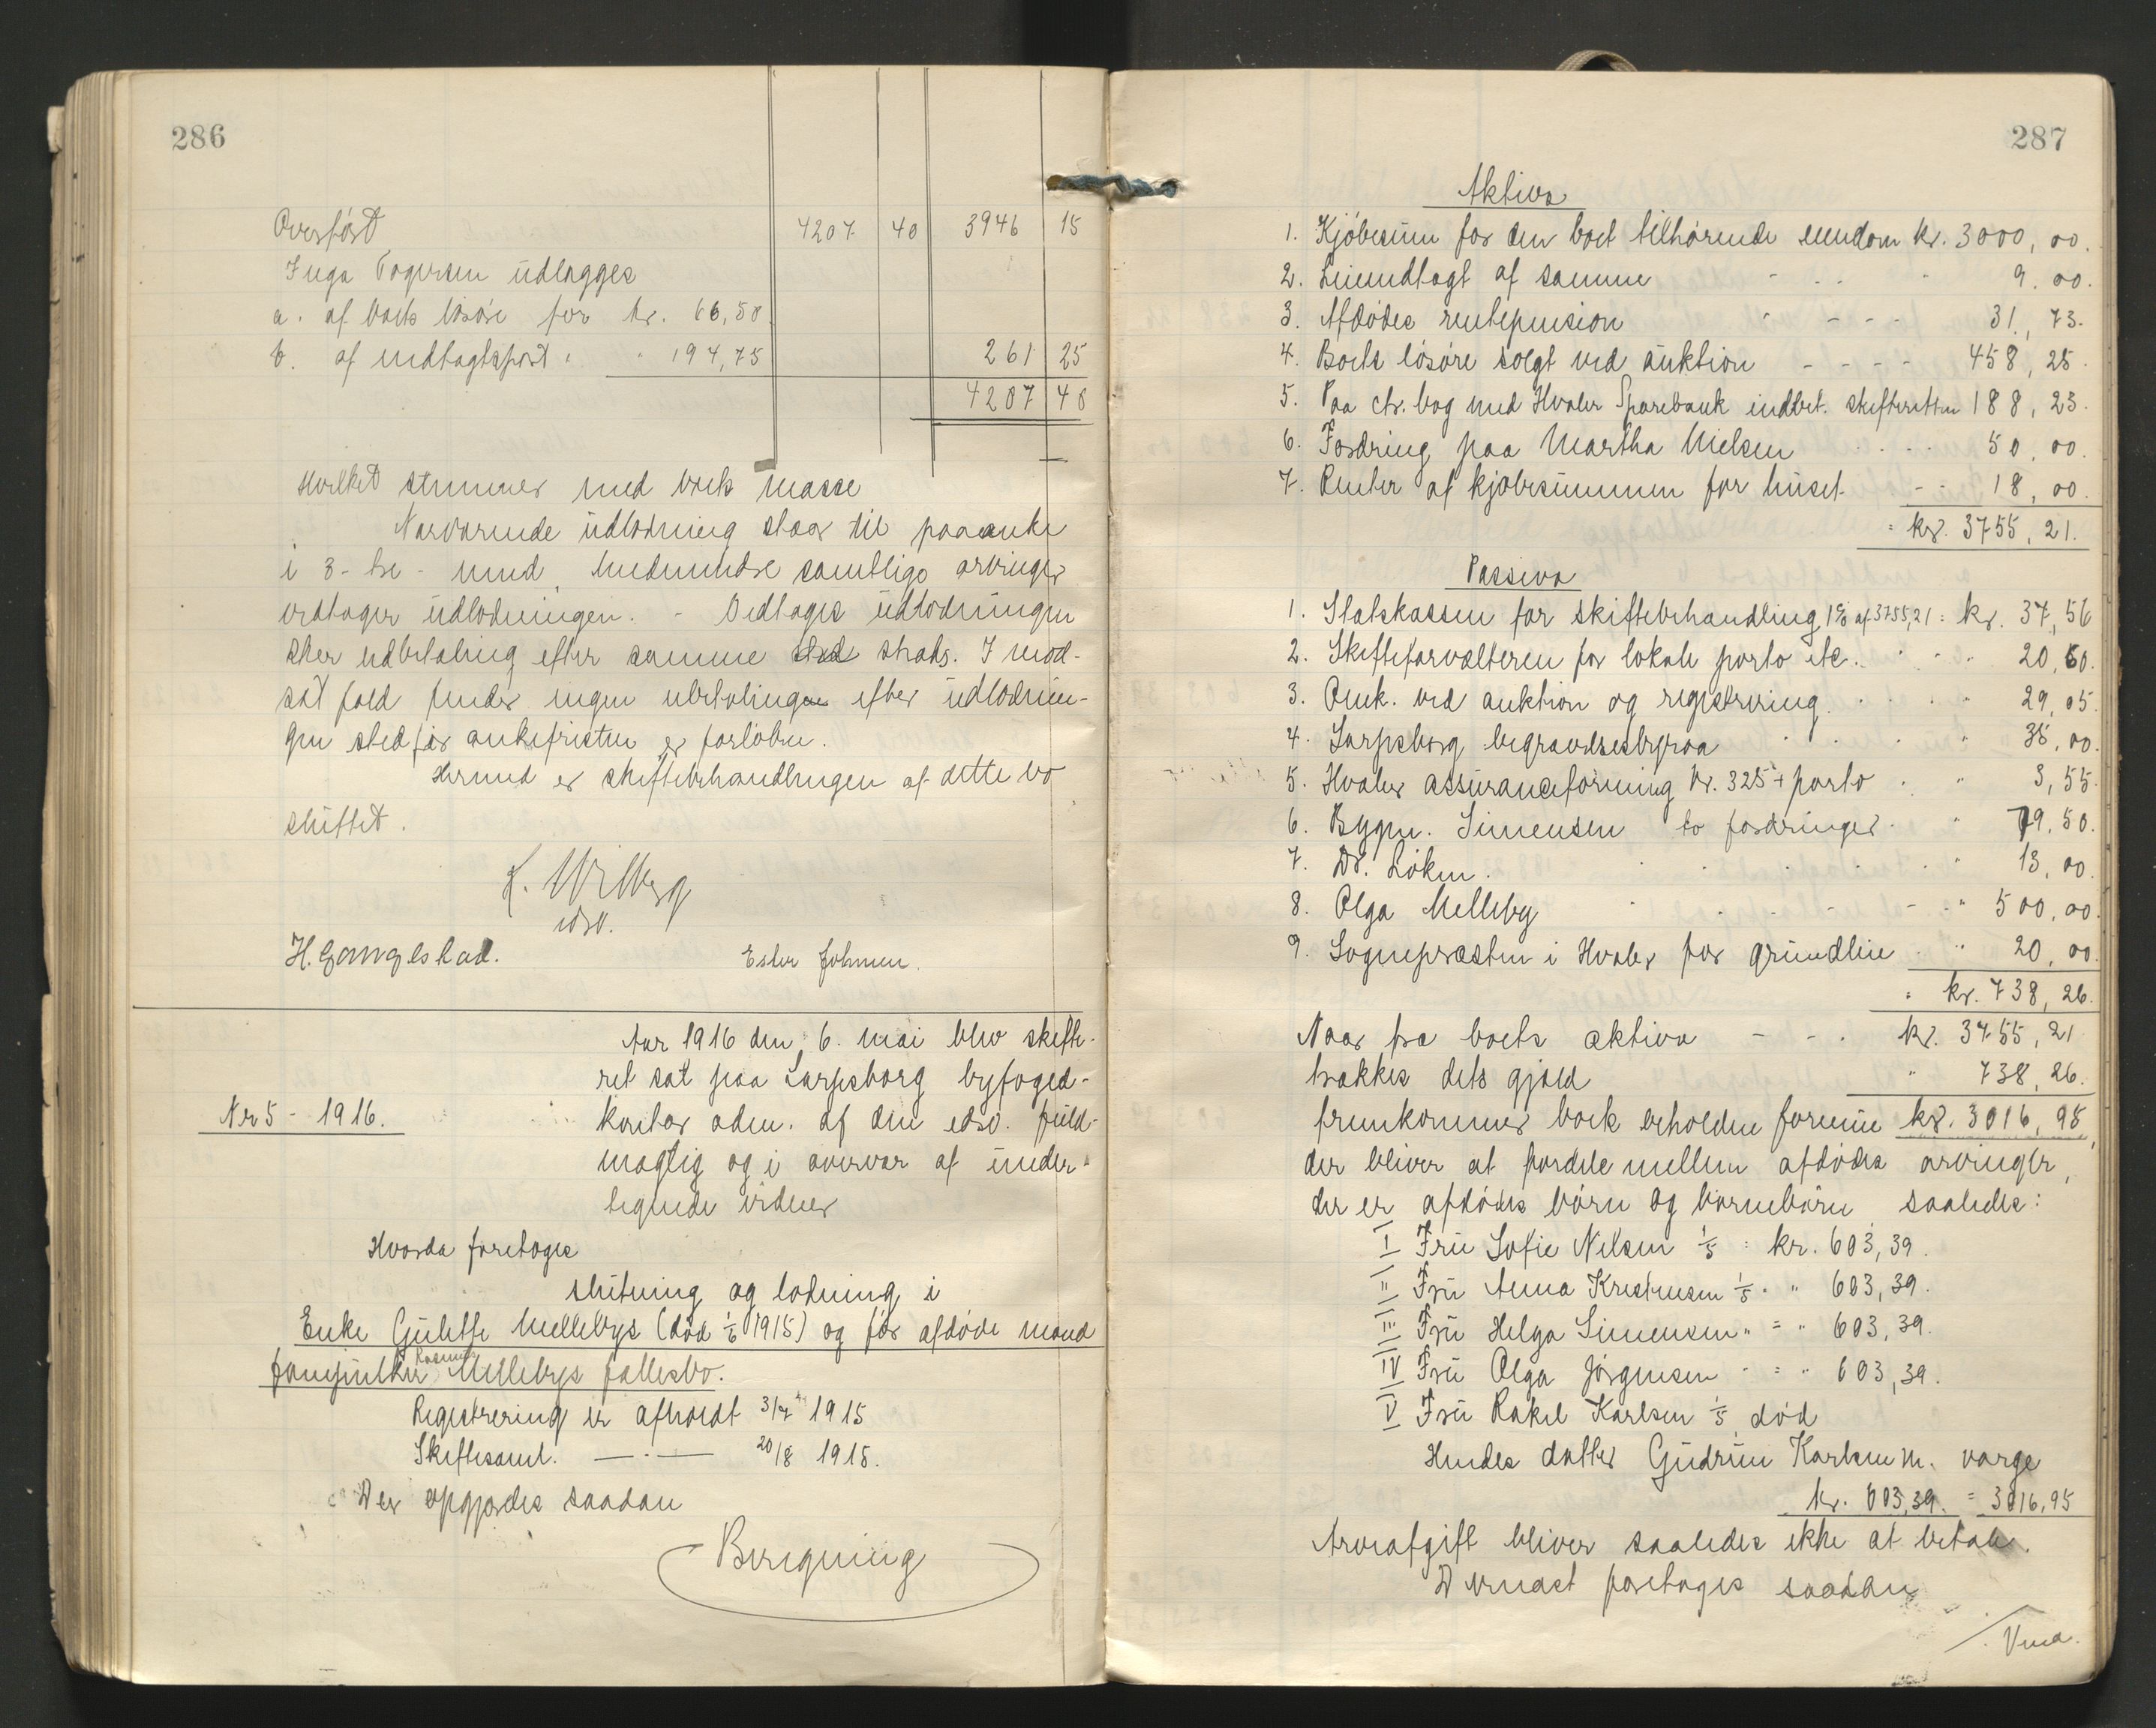 286
Overført 4207 40 3946 15
Inga Torgersen udlægges
a. af boets løsøre for kr. 66,50
b. af indtægtspost " " 194,75 261 25
4207 40
Hvilket stemmer med boets masse
Nærværende udlodning staar til paaanke
i 3 - tre - mnd, medmindre samtlige arvinger
vedtager udlodningen. - Vedtages udlodningen
sker udbetaling efter samme straks. I mod-
sat fald finder ingen ubetaling efter udlodnin-
gen sted før ankefristen er forløben.
Hermed er skiftebehandlingen af dette bo
sluttet.
K. Wilberg
edsv.
H. Gangestad. Ester Johnsen.
Aar 1916 den 6. mai blev skifte-
ret sat paa Sarpsborg byfoged-
Nr 5 - 1916. kontor adm. af den edsv. fuld-
mægtig og i overvær af under-
tegnede vidner
Hvorda foretoges
slutning og lodning i
Enke Gulette Mellebys (død 1/6 1915) og før afdøde mand
Rasmus
Mellebys fællesbo.
Registrering er afholdt 3/7 1915
Skiftesaml. — . — 20/8 1915.
Der opgjordes saadan
Beregning
287
Aktiva
1. Kjøbesum for den boet tilhørende eiendom kr. 3000,00.
2. Leieindtægt af samme - - - " 9.00.
3. Afdødes rentepension " - - - - 31,73.
4. Boets løsøre solgt ved auktion - - - - 458,25.
5. Paa ctr. bog med Hvaler Sparebank indbet. skifteretten 188,23.
6. Fordring paa Martha Nielsen . . . . 50,00.
7. Renter af kjøbesummen for huset - - 18,00.
= kr. 3755,21.
Passiva
1. Statskassen for skiftebehandling 1% af 3755,21 = kr. 37,56
2. Skifteforvalteren for lokale porto etc. " " " 20,60.
3. Omk. ved auktion og registrering. . . . " 29,05.
4. Sarpsborg begravelsesbyraa " " " 35,00.
5. Hvaler assuranceforening kr. 325 + porto . " 3,55.
6. Bygm. Simensen to fordringer. " 79,50.
7. Dr. Løken. . . . . . " 13,00.
8. Olga Melleby . . - - - " 500,00.
9. Sognepresten i Hvaler for grundleie . " 20,00
= kr. 738,26.
Naar fra boets aktiva - - . kr. 3755,21
trækkes dets gjæld " 738,26.
fremkommer boets beholdne formue kr. 3016,95,
der bliver at fordele mellem afdødes arvinger,
der er afdødes børn og børnebørn saaledes:
I Fru Sofie Nilsen 1/5 = kr. 603,39.
II Fru Anna Kristensen 1/5 " " 603,39.
III Fru Helga Simensen " = " 603,39.
IV Fru Olga Jørgensen " = " 603,39.
V Fru Rakel Karlsen 1/5 død
Hendes datter Gudrun Karlsen m. værge
kr. 603,39. = 3016,95
Arveafgift bliver saaledes ikke at betale.
Dernæst foretoges saadan
/ Vend.